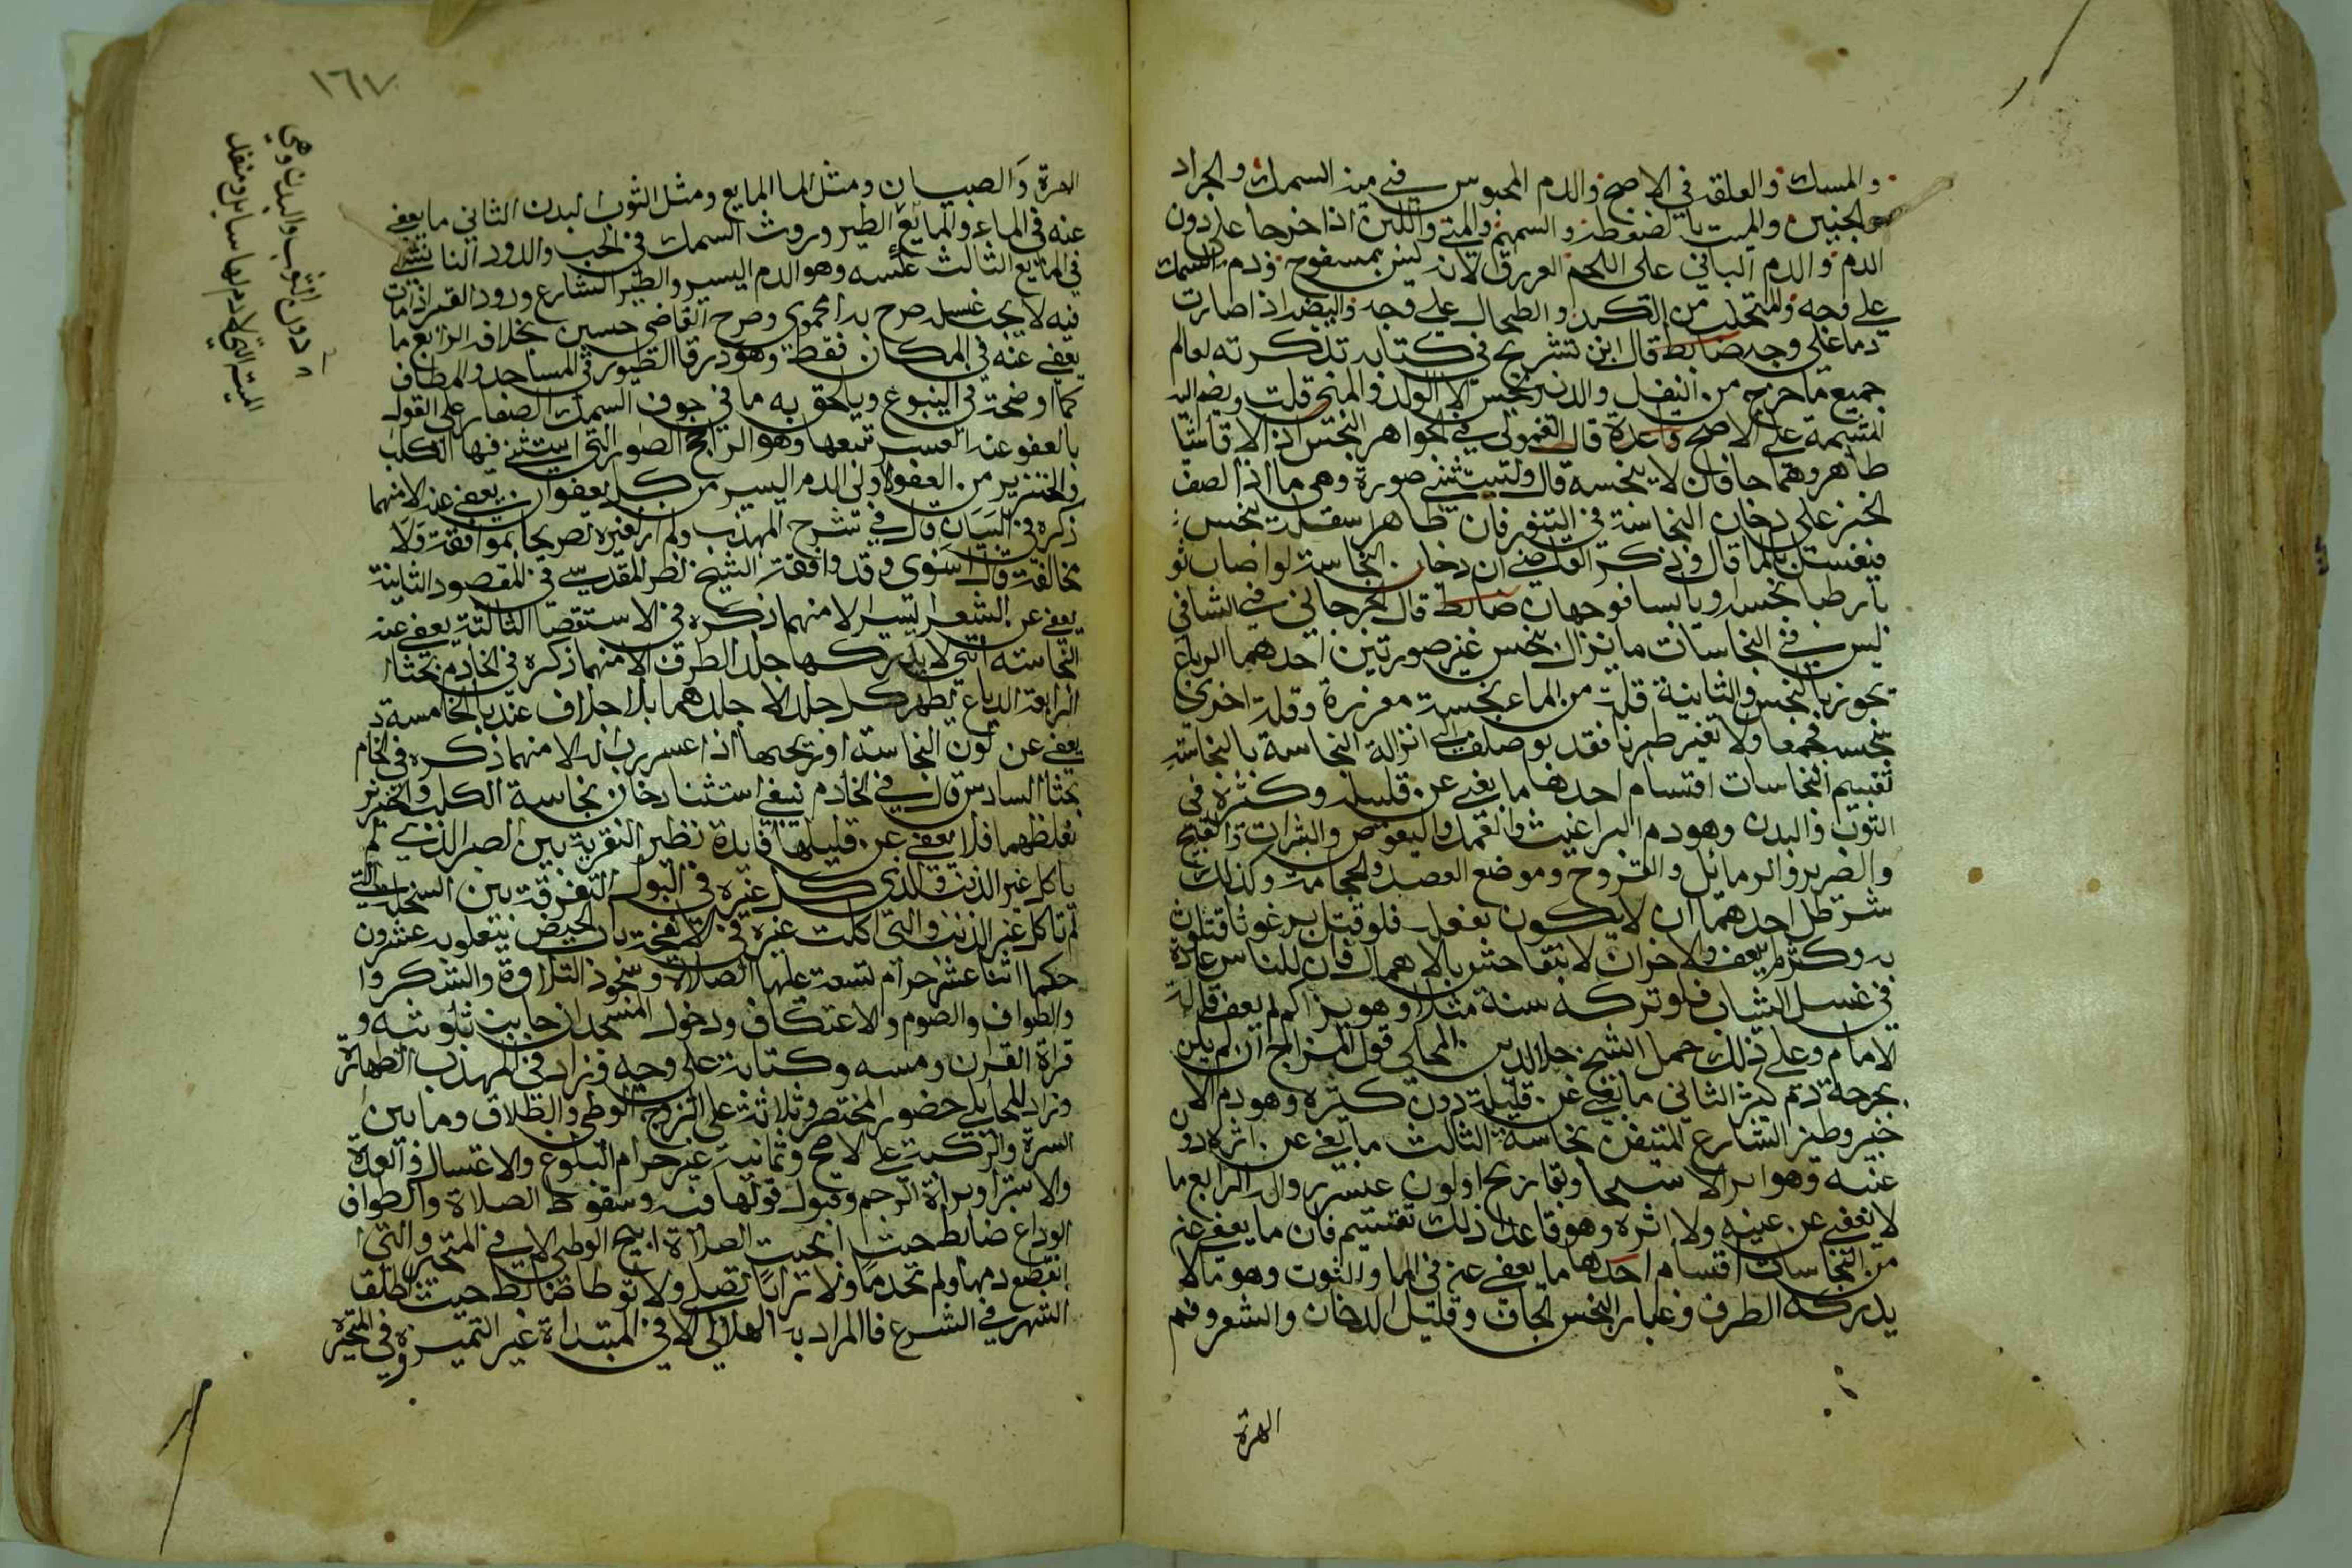 والمسك والعلقة في الاصح والدم المحبوس في ميتة السمك والجراد
والجنين والميت بالضغطة والسهم والمني واللبن اذا خرجا علي دون
الدم والدم الباقي على اللحم العروق لانه ليس بمسفوح ودم السمك
علي وجه والمتحلب من الكبد والطحال علي وجه والبيض اذا صارت
دما على وجه ضابط قال ابن سريج في كتابه تذكرته لعالم
جميع ما خرج من القبل والدبر نجس الا الولد والمني قلت ويضم اليه
المشيمة على الاصح قاعدة قال القمولي في الجواهر النجس اذا لاقا شيا
طاهرا وهما جافان لا ينجسه قال ويستثني صورة وهي ما اذا الصق
الخبز على دخان النجاسة في التنور فان ظاهر اسفله ينجس
فيغسل بالما قال وذكر القاضي ان دخان النجاسة لو اصاب ثو
با رطبا نجسه او يابسا فوجهان ضابط قال الجرجاني في الشافي
ليس في النجاسات ما يزال بنجس غير صورتين احدهما الدباغ
يجوز بالنجس والثانية قلة من الماء نجسة مفرزة وقلة اخري
نجسة فجمعا ولا تغير طهرتا فقد توصلت الي ازالة النجاسة بالنجاسة
تقسيم النجاسات اقسام احدها ما يعفي عن قليله وكثيره في
الثوب والبدن وهو دم البراغيث والقمل والبعوض والبثرات والقيح
والصديد والدمامل والقروح وموضع الفصد والحجامة وكذلك
شرطا احدهما ان لا يكون بفعله فلو قتل برغوثا فتلوث
به وكثر لم يعف والاخر ان لا يتفاحش بالاهمال فان للناس عادة
في غسل الثياب فلو تركه سنة مثلا وهو يتراكم لم يعف قاله
الامام وعلي ذلك حمل الشيخ جلال الدين المحلي قول المنهاج ان لم يكن
بجرحه دم كثير الثاني ما يعفي عن قليله دون كثيره وهو دم الا
جنبي وطين الشارع المتيقن نجاسته الثالث ما يعفي عن اثره دو
عنبه وهو اثر الاستنجا وبقا ريح او لون عسر زواله الرابع ما
لا يعفي عن عينه ولا اثره وهو ما عدا ذلك تقسيم فان ما يعفي عنه
من النجاسات اقسام احدها ما يعفي عنه في الما والثوب وهو ما لا
يدركه الطرف وغبار النجس الجاف وقليل الدخان والشعر وفم
الهرة
١٦٧
الهرة والصبيان ومثل الما المايع ومثل الثوب البدن الثاني ما يعفي
عنه في الماء والمايع الطير وروث السمك في الحب والدود الناشئ
في المايع الثالث عكسه وهو الدم اليسير والطين الشارع ودود القز اذا مات
فيه لا يجب غسله صرح به الحموي وصرح القاضي حسين بخلافه الرابع ما
يعفي عنه في المكان فقط وهو ذرق الطيور في المساجد والمطاف
كما اوضحته في الينبوع ويلحق به ما في جوف السمك الصغار على القول
بالعفو عنه لعسر تتبعها وهو الراجح الصور التي استثني فيها الكلب
والخنزير من العفو الاولى الدم اليسير من كل يعفو ان يعفي عنه الا منهما
ذكره في البيان قال في شرح المهذب ولم ار لغيره تصريحا بموافقة ولا
مخالفة قال اسنوي وقد وافقه الشيخ نصر المقدسي في المقصود الثانية
يعفي عن الشعر اليسير الا منهما ذكره في الاستقصا الثالثة يعفي عنه
النجاسة التي لا يدركها الطرف الا منهما ذكره في الخادم بحثا
الرابعة الدباغ يطهر كل جلد الا جلدهما بلا خلاف عندنا الخامسة
يعفي عن لون النجاسة او ريحها اذا عسر زواله الا منهما ذكره في الخادم
بحثا السادس قال في الخادم ينبغي استثنا دخان نجاسة الكلب والخنزير
لغلظهما فلا يعفي عن قليلها فايدة نظير التفرقة بين الصبي الذي لم
ياكل غير اللبن والذي اكل غيره في البول التفرقة بين السخلة التي
لم تاكل غير اللبن والتي اكلت غيره في الانفحة باب الحيض يتعلق به عشرون
حكما اثنا عشر حرام تسعة عليها الصلاة وسجود التلاوة والشكر وا
والطواف والصوم والاعتكاف ودخول المسجد ان خافت تلويثه و
قراة القران ومسه وكتابته على وجه وزاد في المهذب الطهارة
وزاد المحاملي حضور المحتضر وثلاثة على الزوج الوطي والطلاق وما بين
السرة والركبة علي الاصح وثمانية غير حرام البلوغ والاغتسال والعدة
والاستبرا وبراة الرحم وقبول قولها فيه وسقوط الصلاة والطواف
الوداع ضابط حيث ابيحت الصلاة ابيح الوطي الا في المتحيرة والتي
انقطع دمها ولم تجد ما ولا ترابا تصلي ولا توطا ضابط حيث اطلقا
الشهر في الشرع فالمراد به الهلالي الا في المبتداة غير المميزة وفي المتحيرة
دون الثوب والبدن وهي
الميتة التي لا دم لها سايل ومنفذ